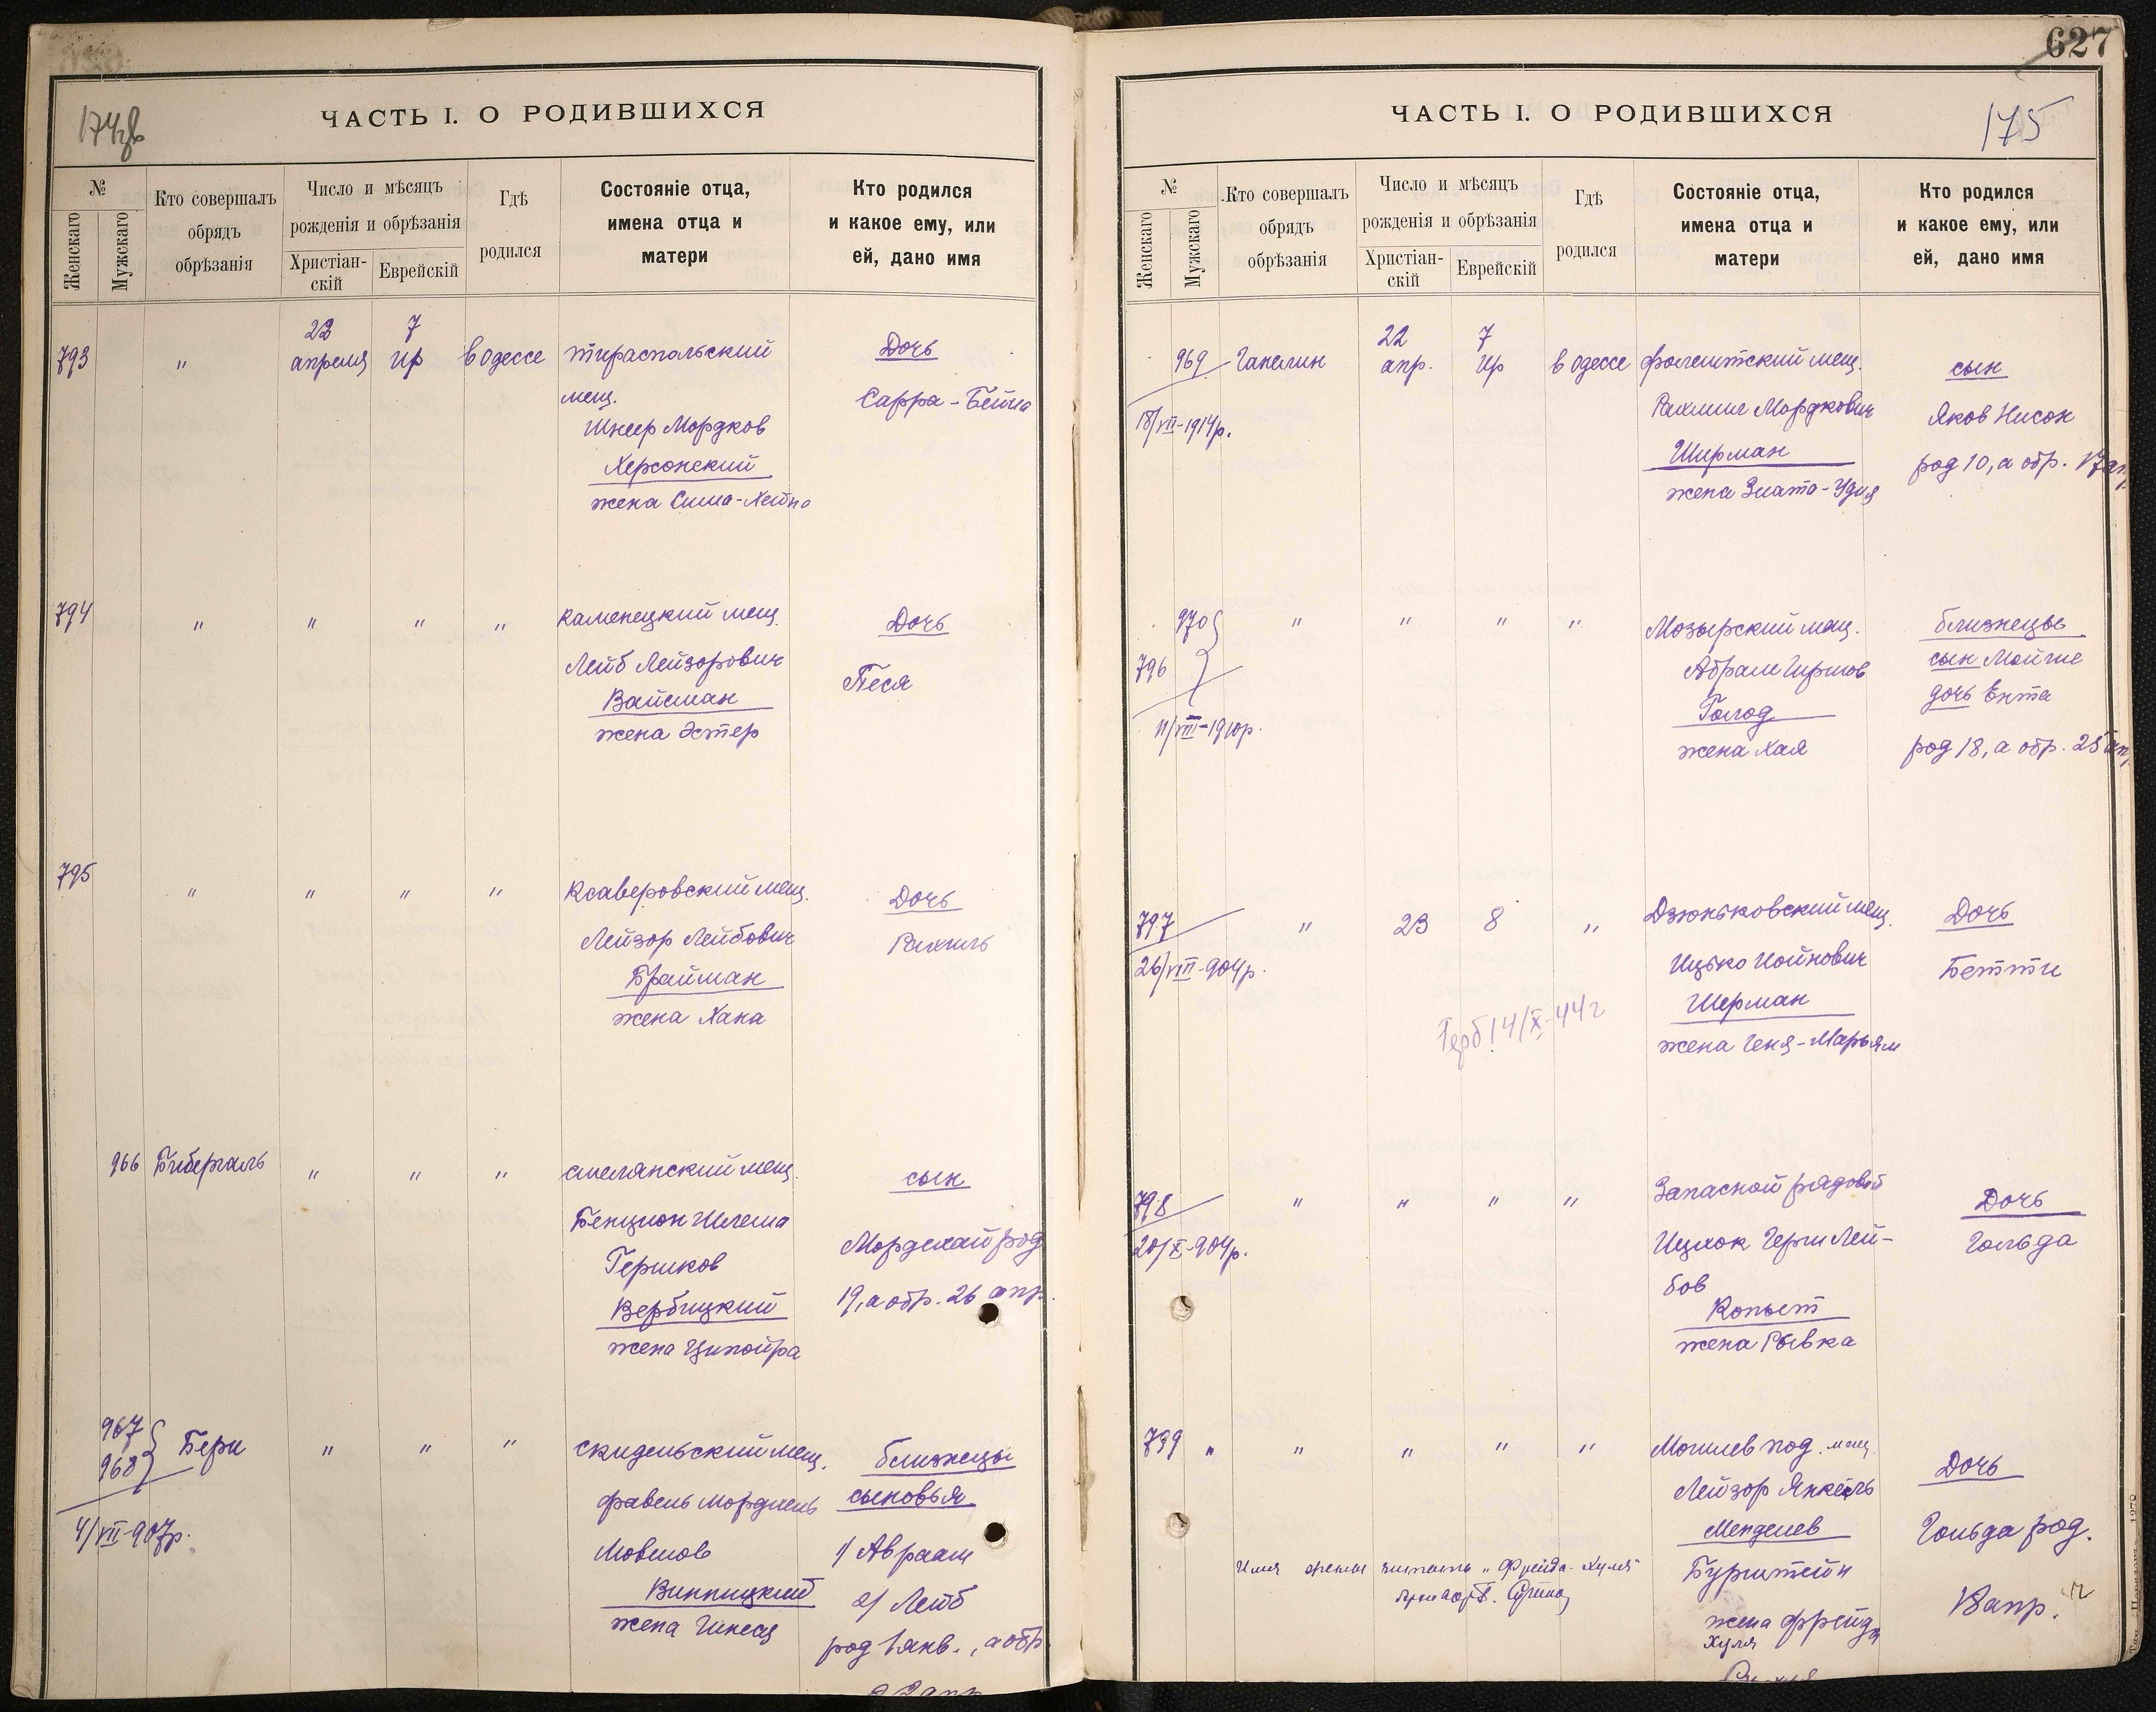 627
ЧАСТЬ I. О РОДИВШИХСЯ
№
Женскаго
Мужскаго
Кто совершалъ
обрядъ
обрѣзанія
Число и мѣсяцъ
рожденія и обрѣзанія
Христіан-
скій
Еврейскій
Гдѣ
родился
Состояніе отца,
имена отца и
матери
Кто родился
и какое ему, или
ей, дано имя
793 " 22 апреля 7 ир в Одессе
тираспольский
мещ.
Шнеер Мордков
Херсонский
жена Сима-Хейна
Дочь
Сарра-Бейла
794 " " " "
каменецкий мещ.
Лейб Лейзорович
Вайсман
жена Эстер
Дочь
Песя
795 " " " "
Ксаверовский мещ.
Лейзор Лейбович
Брайман
жена Хана
Дочь
Рахиль
966 Бибергаль " " "
смелянский мещ.
Бенцион Шлема
Гершков
Вербицкий
жена Ципойра
сын
Мордехай род
19, а обр. 26 апр.
967
968 Бери " " "
4/VII-907р.
скидельский мещ.
Мовшов
Винницкий
жена
близнецы
сыновья
1/ Авраам
2/ Лейб
род 1 янв., а обр.
ЧАСТЬ I. О РОДИВШИХСЯ
175
№
Женскаго
Мужскаго
Кто совершалъ
обрядъ
обрѣзанія
Число и мѣсяцъ
рожденія и обрѣзанія
Христіан-
скій
Еврейскій
Гдѣ
родился
Состояніе отца,
имена отца и
матери
Кто родился
и какое ему, или
ей, дано имя
969 Гапелин 22 апр. 7 ир в Одессе
18/VII-1914р.
фалештский мещ.
Рахмил Мордкович
Ширман
жена Злата-Удия
сын
Яков Нисон
род 10, а обр. 17 ап.
970
796 " " " "
11/VIII-1910р.
Мозырский мещ.
Абрам Гиршов
Голод
жена Хая
близнецы
сын Мойше
дочь Ента
род 18, а обр. 25 апр.
797 " 23 8 "
26/VIII-904р.
14/X-44г
Дзюньковский мещ.
Ицько Нойнович
Шерман
жена Геня-Марьям
Дочь
Бетти
798 " " " "
20/X-904р.
Запасной рядовой
Ицхок Герш Лей-
бов
Копыт
жена Рывка
Дочь
Гольда
799 " " " " "
Могилев под. мещ.
Лейзор Янкель
Менделев
Бурштейн
жена Фрейда
Хуля
Дочь
Гольда род.
18 апр.
Имя жены читать „Фрейда-Хуля"